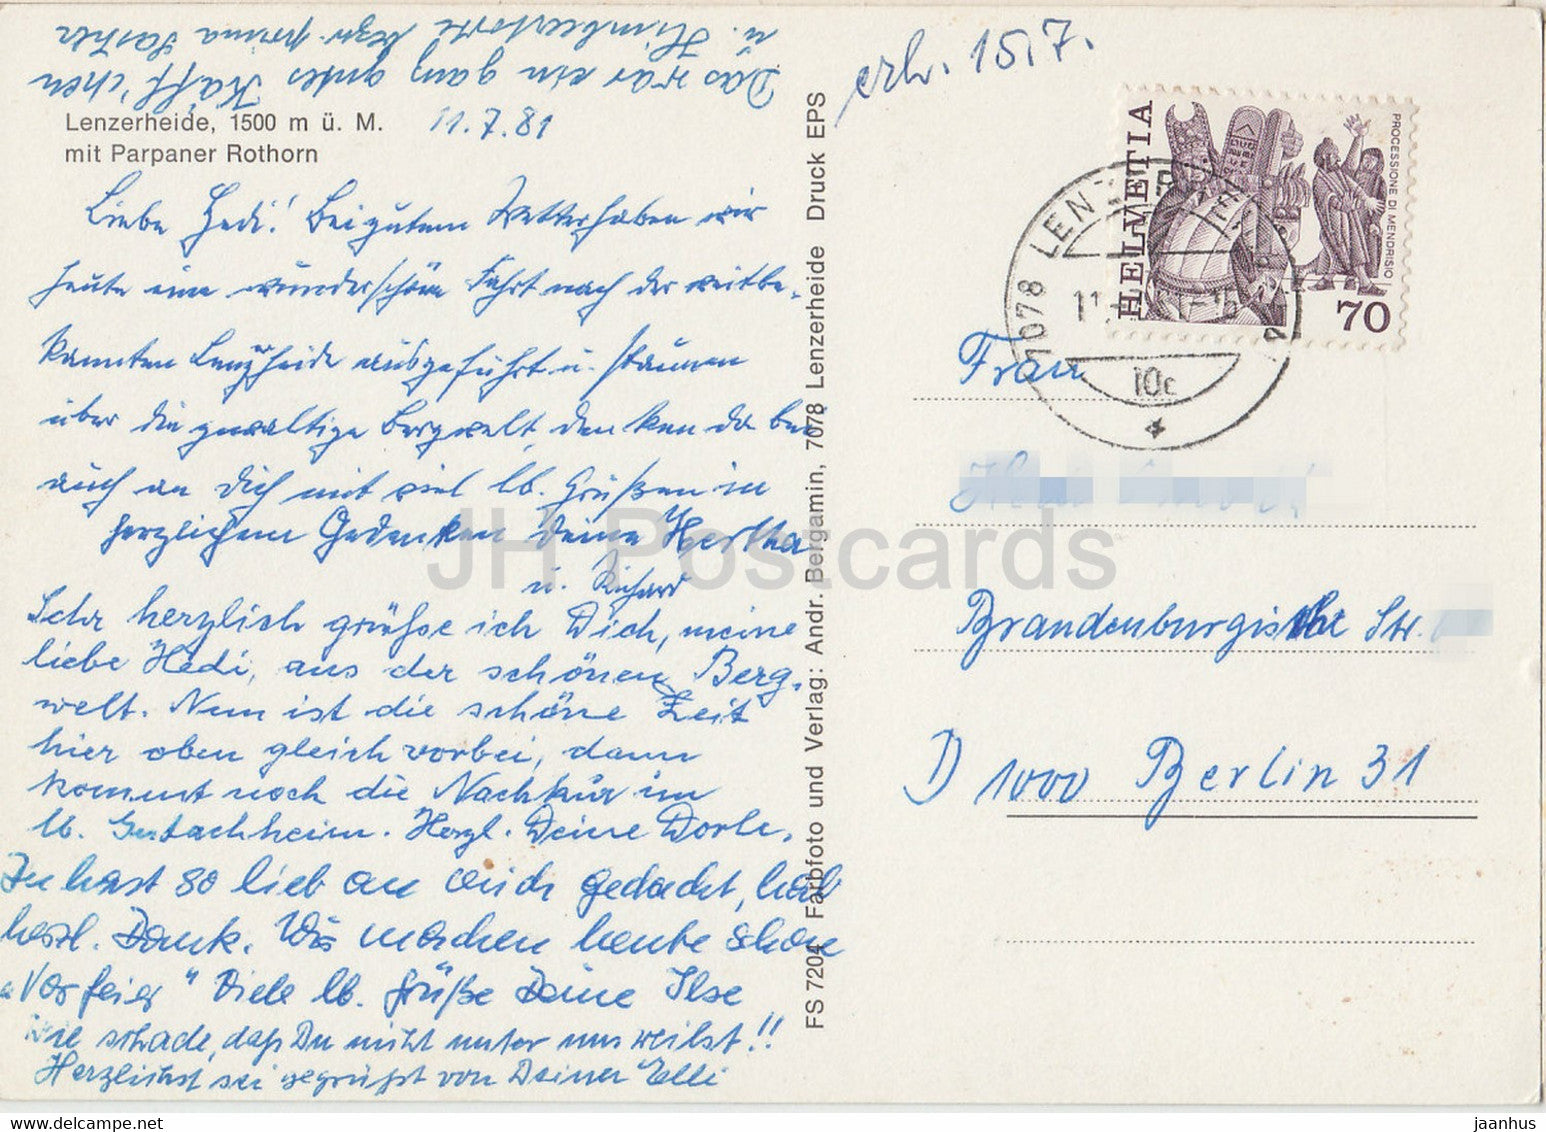 Das war ein ganz gutes Kaff'chen
u. Himbeertorte bezw. prima Sacher
Lenzerheide, 1500 m ü. M.
mit Parpaner Rothorn
11.7.81
Liebe Hedi! Bei gutem Wetter haben wir
heute eine wunderschöne Fahrt nach der weitbe-
kannten Lenzerheide ausgeführt u. staunen
über die gewaltige Bergwelt, denken da bei
auch an Dich mit viel lb. Grüßen in
herzlichem Gedenken Deine Hertha
u. Richard
Sehr herzlich grüße ich Dich, meine
liebe Hedi, aus der schönen Berg-
welt. Nun ist die schöne Zeit
hier oben gleich vorbei, dann
kommt noch die Nachkur im
lb. Gutachheim. Herzl. Deine Dorle.
Du hast so lieb an mich gedacht, hab
herzl. Dank. Wir machen heute schon
"Vorfeier" Viele lb. Grüße Deine Ilse
Wie schade, daß Du nicht unter uns weilst!!
Herzlichst sei gegrüßt von Deiner Elli
FS 7204 Farbfoto und Verlag: Andr. Bergamin, 7078 Lenzerheide Druck EPS
erh. 15.7.
HELVETIA
PROCESSIONE DI MENDRISIO
70
7078 LENZERHEIDE
10c
Frau
Brandenburgische Str.
D 1000 Berlin 31
JH Postcards
jaanhus